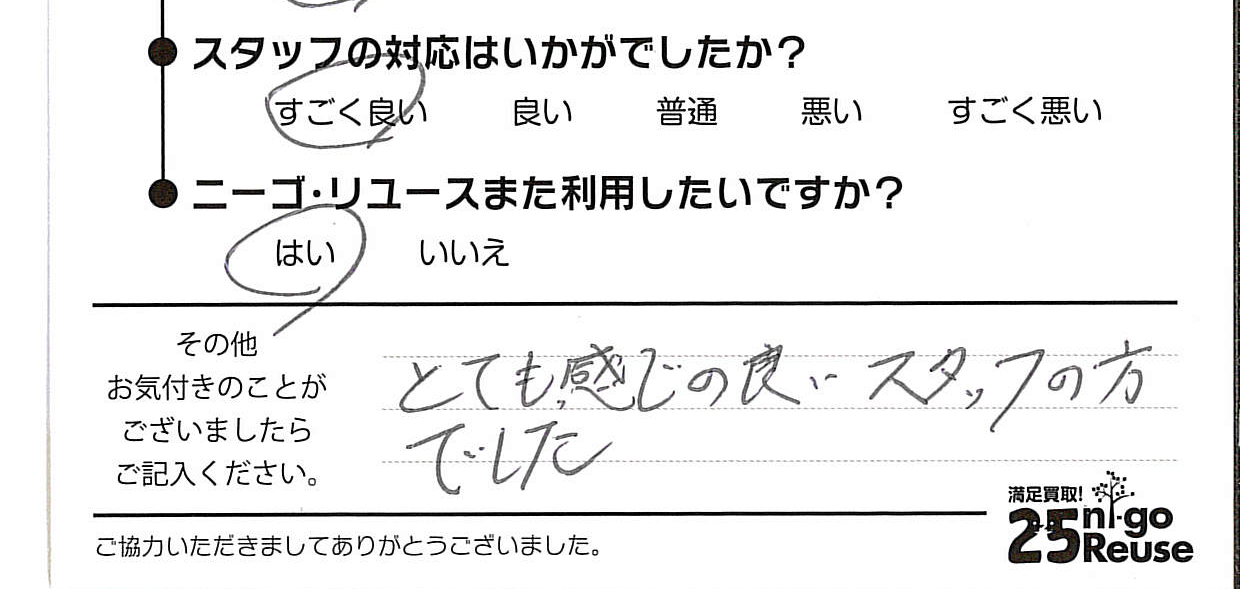 スタッフの対応はいかがでしたか？
すごく良い 良い 普通 悪い すごく悪い
ニーゴ・リユースまた利用したいですか？
はい いいえ
その他
お気付きのことが
ございましたら
ご記入ください。
とても感じの良いスタッフの方
でした
満足買取!
25 ni-go
Reuse
ご協力いただきましてありがとうございました。